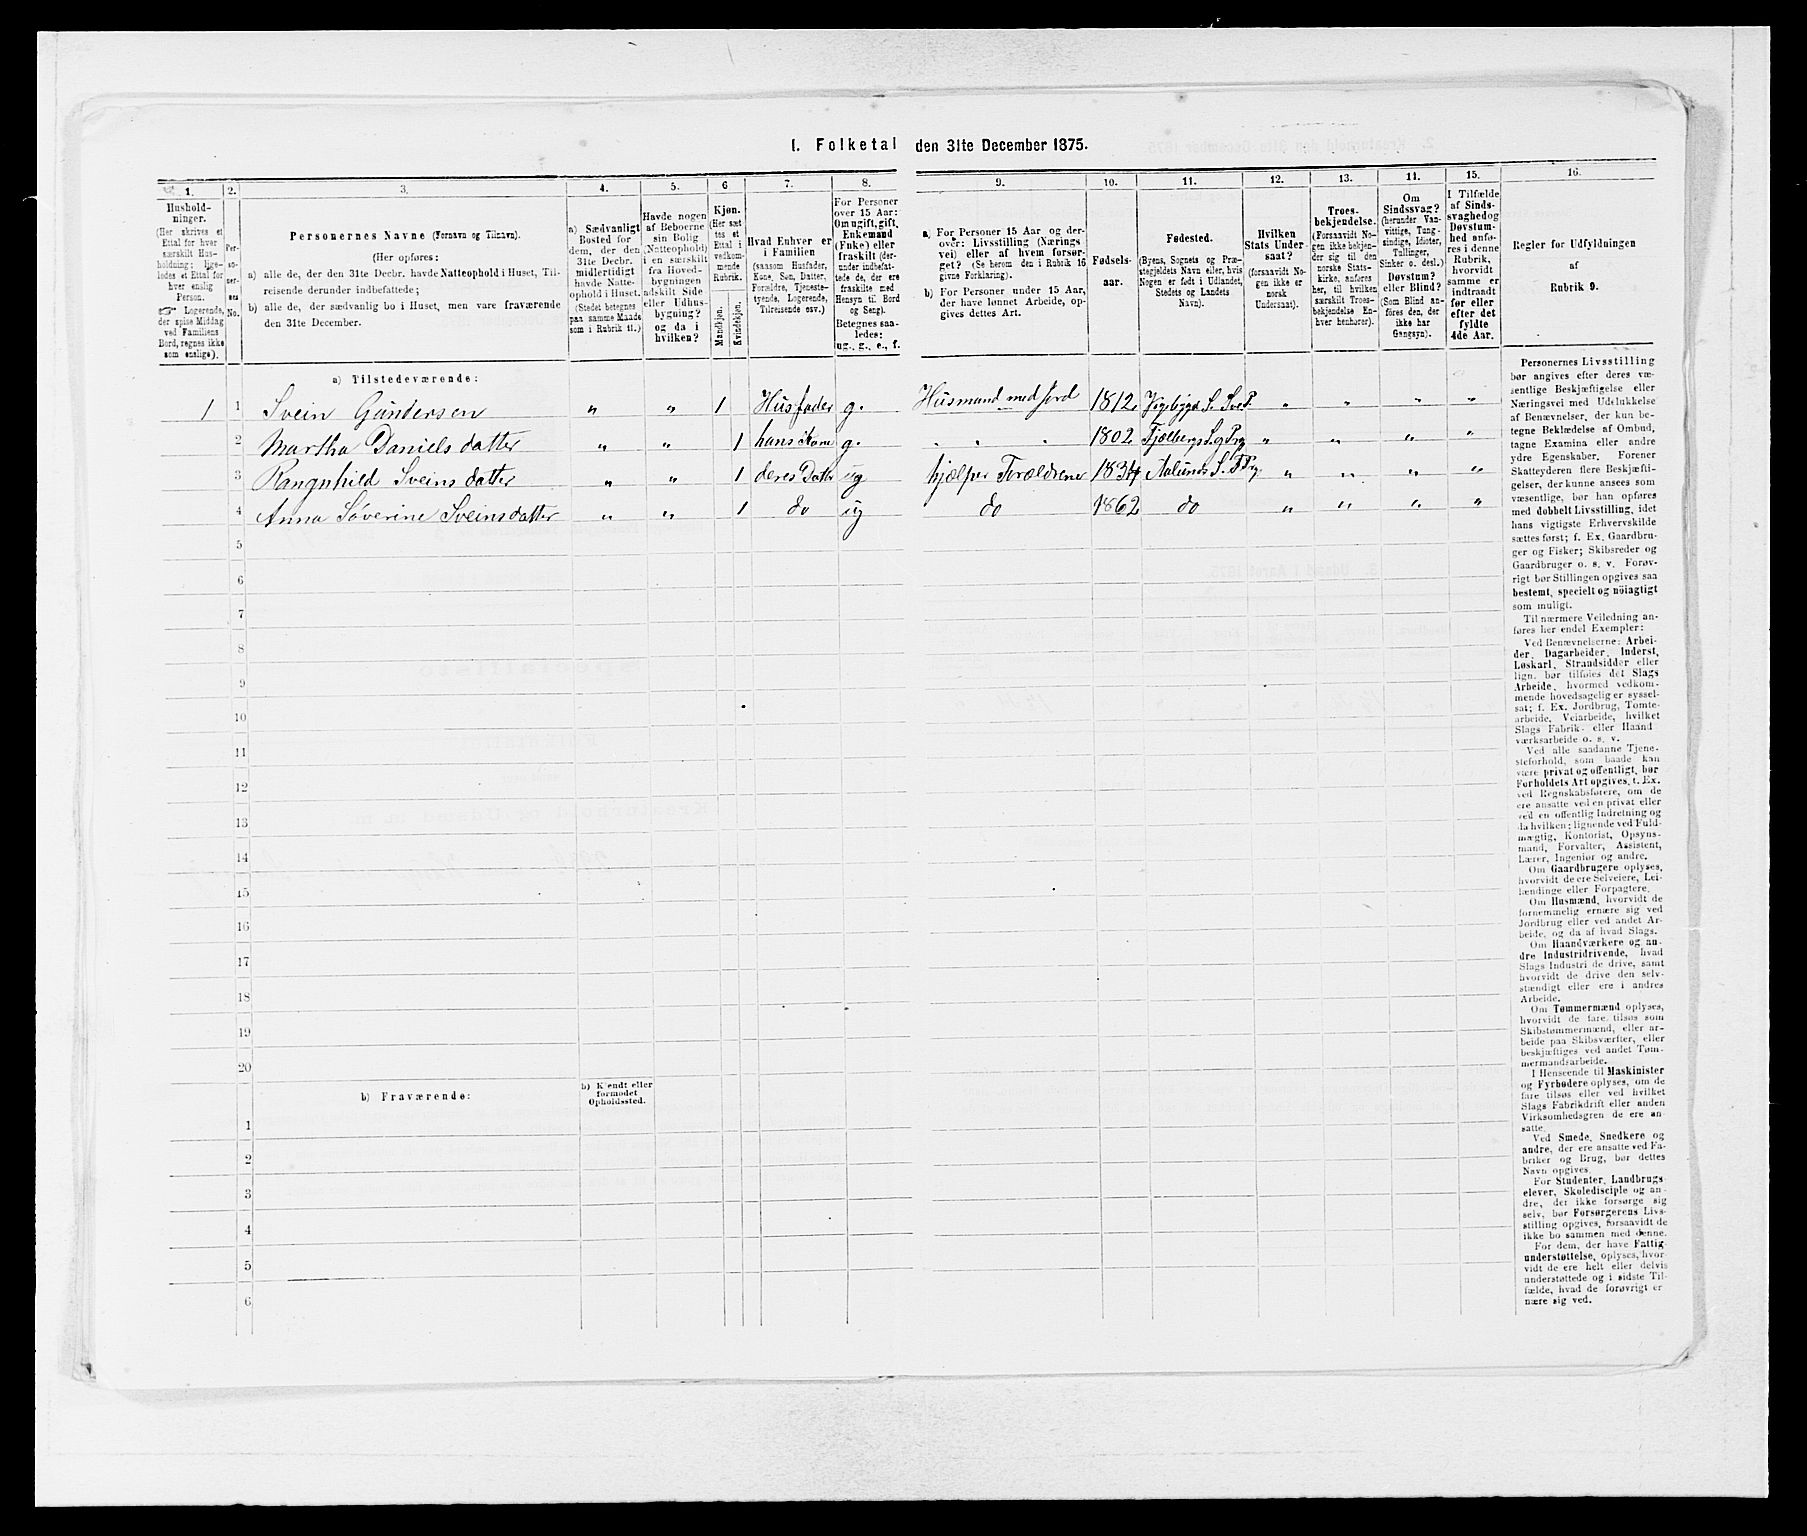 I. Folketal den 31te December 1875.
1. 2. 3. 4. 5. 6 7. 8. 9. 10. 11. 12. 13. 11. 15. 16.
Hushold-
ninger.
(Her skrives et
Ettal for hver
særskilt Hus-
holdning; lige-
ledes et Ettal for
hver enslig
Person.
☞ Logerende,
der spise Middag
ved Familiens
Bord, regnes ikke
som enslige).
Per-
so-
ner-
nes
No.
Personernes Navne (Fornavn og Tilnavn).
(Her opføres:
a) alle de, der den 31te Decbr. havde Natteophold i Huset, Til-
reisende derunder indbefattede;
b) alle de, der sædvanlig bo i Huset, men vare fraværende
den 31te December.
a) Sædvanligt
Bosted for
dem, der den
31te Decbr.
midlertidigt
havde Natte-
ophold i Huset.
(Stedet betegnes
paa samme Maade
som i Rubrik 11.)
Havde nogen
af Beboerne
sin Bolig
(Natteophold)
i en særskilt
fra Hoved-
bygningen
adskilt Side
eller Udhus-
bygning?
og da i
hvilken?
Kjøn.
(Her sæt
tes et
Ettal i
vedkom-
mende
Rubrik.
Mandkjøn.
Kvindekjøn.
Hvad Enhver er
i Familien
(saasom Husfader,
Kone, Søn, Datter,
Forældre, Tjeneste-
tyende, Logerende,
Tilreisende osv.)
For Personer
over 15 Aar:
Om ugift, gift,
Enkemand
(Enke) eller
fraskilt (der-
under indbefat-
tede de, der ere
fraskilte med
Hensyn til Bord
og Seng).
Betegnes saa-
ledes:
ug., g., e., f.
a. For Personer 15 Aar og der-
over: Livsstilling (Nærings-
vei) eller af hvem forsør-
get? (Se herom den i Rubrik 16
givne Forklaring).
b) For Personer under 15 Aar,
der have lønnet Arbeide, op-
gives dettes Art.
Fødsels-
aar.
Fødested.
(Byens, Sognets og Præ-
stegjeldets Navn eller, hvis
Nogen er født i Udlandet,
Stedets og Landets
Navn).
Hvilken
Stats Under-
saat?
(forsaavidt No-
gen ikke er
norsk
Undersaat).
Troes-
bekjendelse.
(Forsaavidt No-
gen ikke bekjen-
der sig til den
norske Stats-
kirke, anføres
her, til hvilken
særskilt Troes-
bekjendelse En-
hver henhører).
Om
Sindssvag?
(herunder Van-
vittige, Tung-
sindige, Idioter,
Tullinger,
Sinker o. desl.)
Døvstum?
eller Blind?
(Som Blind an-
føres den, der
ikke har
Gangsyn).
I Tilfælde
af Sinds-
svaghed og
Døvstum-
hed anfø-
res i denne
Rubrik,
hvorvidt
samme er
indtrandt
før eller
efter det
fyldte
4de Aar.
Regler for Udfyldningen
af
Rubrik 9.
a) Tilstedeværende:
1 1 Svein Gundersen „ „ 1 Husfader g. Husmand med jord 1812. S. „ „ „ „
2 Martha Danielsdatter „ „ 1 hans Kone g. „ „ „ 1802 „ „ „ „
3 Rangnhild Sveinsdatter „ „ 1 deres Datter ug hjælper Forældrene 1834 „ „ „ „
4 Anna Søverine Sveinsdatter „ „ 1 do ug do 1862 do „ „ „ „
5
6
7
8
9
10
11
12
13
14
15
16
17
18
19
20
b) Fraværende:
b) Kjendt eller
formodet
Opholdssted.
1
2
3
4
5
6
Personernes Livsstilling
bør angives efter deres væ-
sentlige Beskjæftigelse eller
Næringsvei med Udelukkelse
af Benævnelser, der kun be-
tegne Beklædelse af Ombud,
tagne Examina eller andre
ydre Egenskaber. Forener
Skatteyderen flere Beskjæfti-
gelser, der kunne ansees som
væsentlige, bør han opføres
med dobbelt Livsstilling, idet
hans vigtigste Erhvervskilde
sættes først; f. Ex. Gaardbru-
ger og Fisker; Skibsreder og
Gaardbruger o. s. v. Forøv-
rigt bør Stillingen opgives saa
bestemt, specielt og nöiagtigt
som muligt.
Til nærmere Veiledning an-
føres her endel Exempler:
Ved Benævnelserne: Arbei-
der, Dagarbeider, Inderst,
Løskarl, Strandsidder eller
lign. bør tilføies det Slags
Arbeide, hvormed vedkom-
mende hovedsagelig er syssel-
sat; f. Ex. Jordbrug, Tomte-
arbeide, Veiarbeide, hvilket
Slags Fabrik- eller Haand
værksarbeide o. s. v.
Ved alle saadanne Tjene-
steforhold, som baade kan
være privat og offentligt, bør
Forholdets Art opgives, f. Ex.
ved Regnskabsførere, om de
ere ansatte ved en privat eller
ved en offentlig Indretning og
da hvilken; lignende ved Fuld-
mægtig, Kontorist, Opsyns-
mand, Forvalter, Assistent,
Lærer, Ingeniør og andre.
Om Gaardbrugere oplyses,
hvorvidt de ere Selveiere, Lei-
lændinge eller Forpagtere.
Om Husmænd, hvorvidt de
fornemmelig ernære sig ved
Jordbrug eller ved andet Ar-
beide, og da af hvad Slags.
Om Haandværkere og an-
dre Industridrivende, hvad
Slags Industri de drive, samt
hvorvidt de drive den selv-
stændigt eller ere i andres
Arbeide.
Om Tømmermænd oplyses,
hvorvidt de fare tilsøs som
Skibstømmermænd, eller ar-
beide paa Skibsværfter, eller
beskjæftiges ved andet Tøm-
mermandsarbeide.
I Henseende til Maskinister
og Fyrbødere oplyses, om de
fare tilsøs eller ved hvilket
Slags Fabrikdrift eller anden
Virksomhedsgren de ere an-
satte.
Ved Smede, Snedkere og
andre, der ere ansatte ved Fa-
briker og Brug, bør dettes
Navn opgives.
For Studenter, Landbrugs-
elever, Skoledisciple og an-
dre, der ikke forsørge sig
selv, bør Forsørgerens Livs-
stilling opgives, forsaavidt de
ikke bo sammen med denne.
For dem, der have Fattig-
understøttelse, oplyses, hvor-
vidt de ere helt eller delvis
understøttede og i sidste Til-
fælde, hvad de forøvrigt er
nære sig ved.